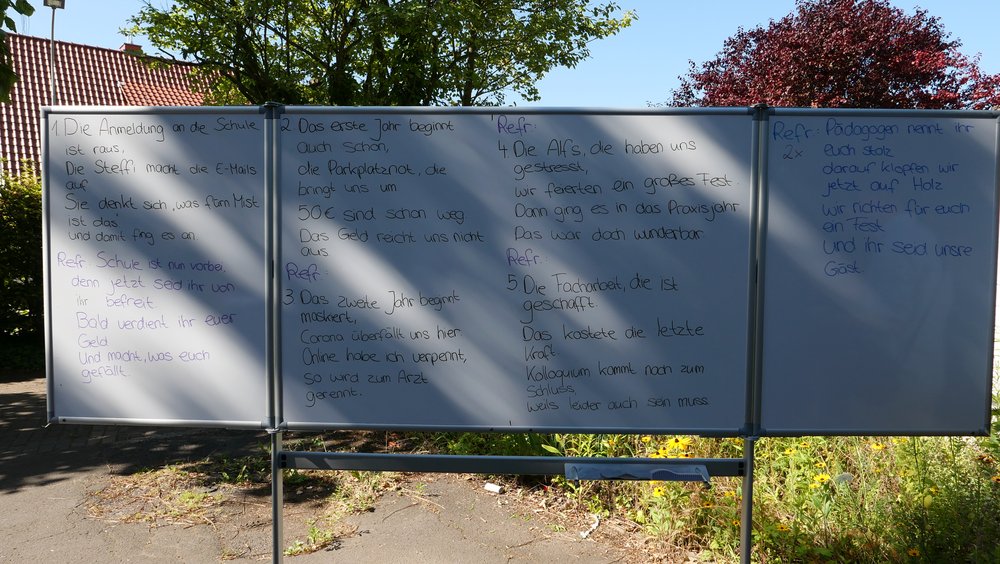 1 Die Anmeldung an die Schule
ist raus,
Die Steffi macht die E-Mails
auf
Sie denkt sich, was fürn Mist
ist das
und damit fing es an.
Refr. Schule ist nun vorbei,
denn jetzt seid ihr von
ihr befreit.
Bald verdient ihr euer
Geld
Und macht, was euch
gefällt.
2 Das erste Jahr beginnt
auch schon,
die Parkplatznot, die
bringt uns um
50€ sind schon weg
Das Geld reicht uns nicht
aus
Refr:
3 Das zweite Jahr beginnt
maskiert,
Corona überfällt uns hier
Online habe ich verpennt,
so wird zum Arzt
gerennt.
Refr.:
4. Die Alfs, die haben uns
gestresst,
wir feierten ein großes Fest.
Dann ging es in das Praxisjahr
Das war doch wunderbar
Refr.:
5 Die Facharbeit, die ist
geschafft.
Das kostete die letzte
Kraft
Kolloquium kommt noch zum
Schluss,
weils leider auch sein muss.
Refr.: Pädagogen nennt ihr
2x euch stolz
darauf klopfen wir
jetzt auf Holz
wir richten für euch
ein Fest
und ihr seid unsre
Gäst.